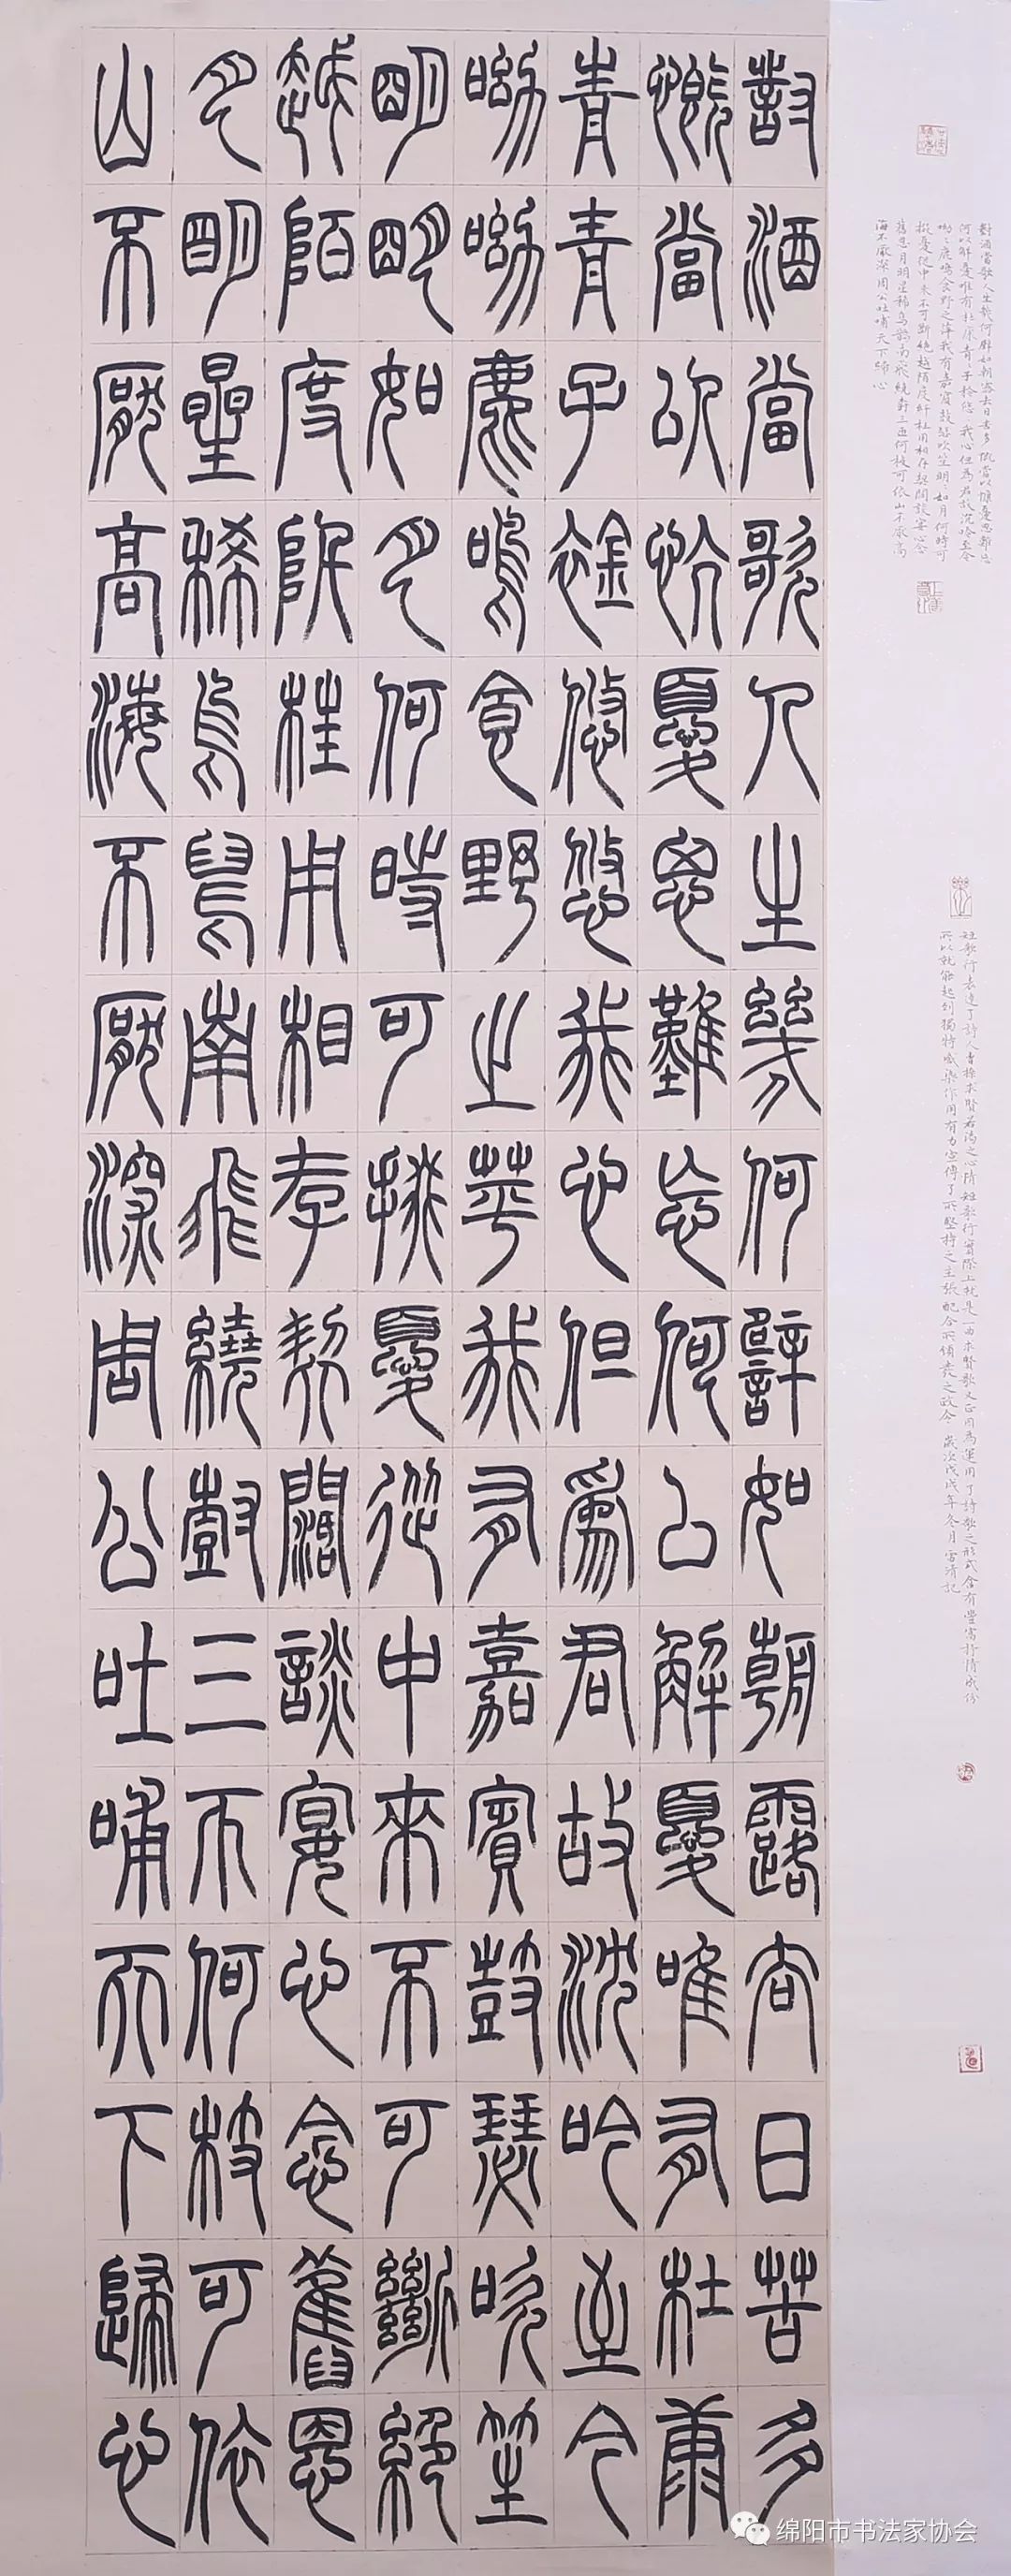 對酒當歌人生幾何譬如朝露去日苦多慨當以慷憂思難忘
何以解憂唯有杜康青々子衿悠々我心但為君故沉吟至今
呦々鹿鳴食野之苹我有嘉賓鼓瑟吹笙明々如月何時可
掇憂從中來不可斷絕越陌度阡枉用相存契闊談宴心念
舊恩月明星稀烏鵲南飛繞樹三匝何枝可依山不厭高
海不厭深周公吐哺天下歸心
短歌行表達了詩人曹操求賢若渴之心情短歌行實際上就是一曲求賢歌又正因為運用了詩歌之形式含有豐富抒情成份
所以就能起到獨特感染作用有力宣傳了所堅持之主張配合所頒發之政令歲次戊戌年冬月
對酒當歌人生幾何譬如朝露去日苦多
慨當以慷憂思難忘何以解憂唯有杜康
青青子衿悠悠我心但為君故沈吟至今
呦呦鹿鳴食野之苹我有嘉賓鼓瑟吹笙
明明如月何時可掇憂從中來不可斷絕
越陌度阡枉用相存契闊談宴心念舊恩
月明星稀烏鵲南飛繞樹三匝何枝可依
山不厭高海不厭深周公吐哺天下歸心
绵阳市书法家协会